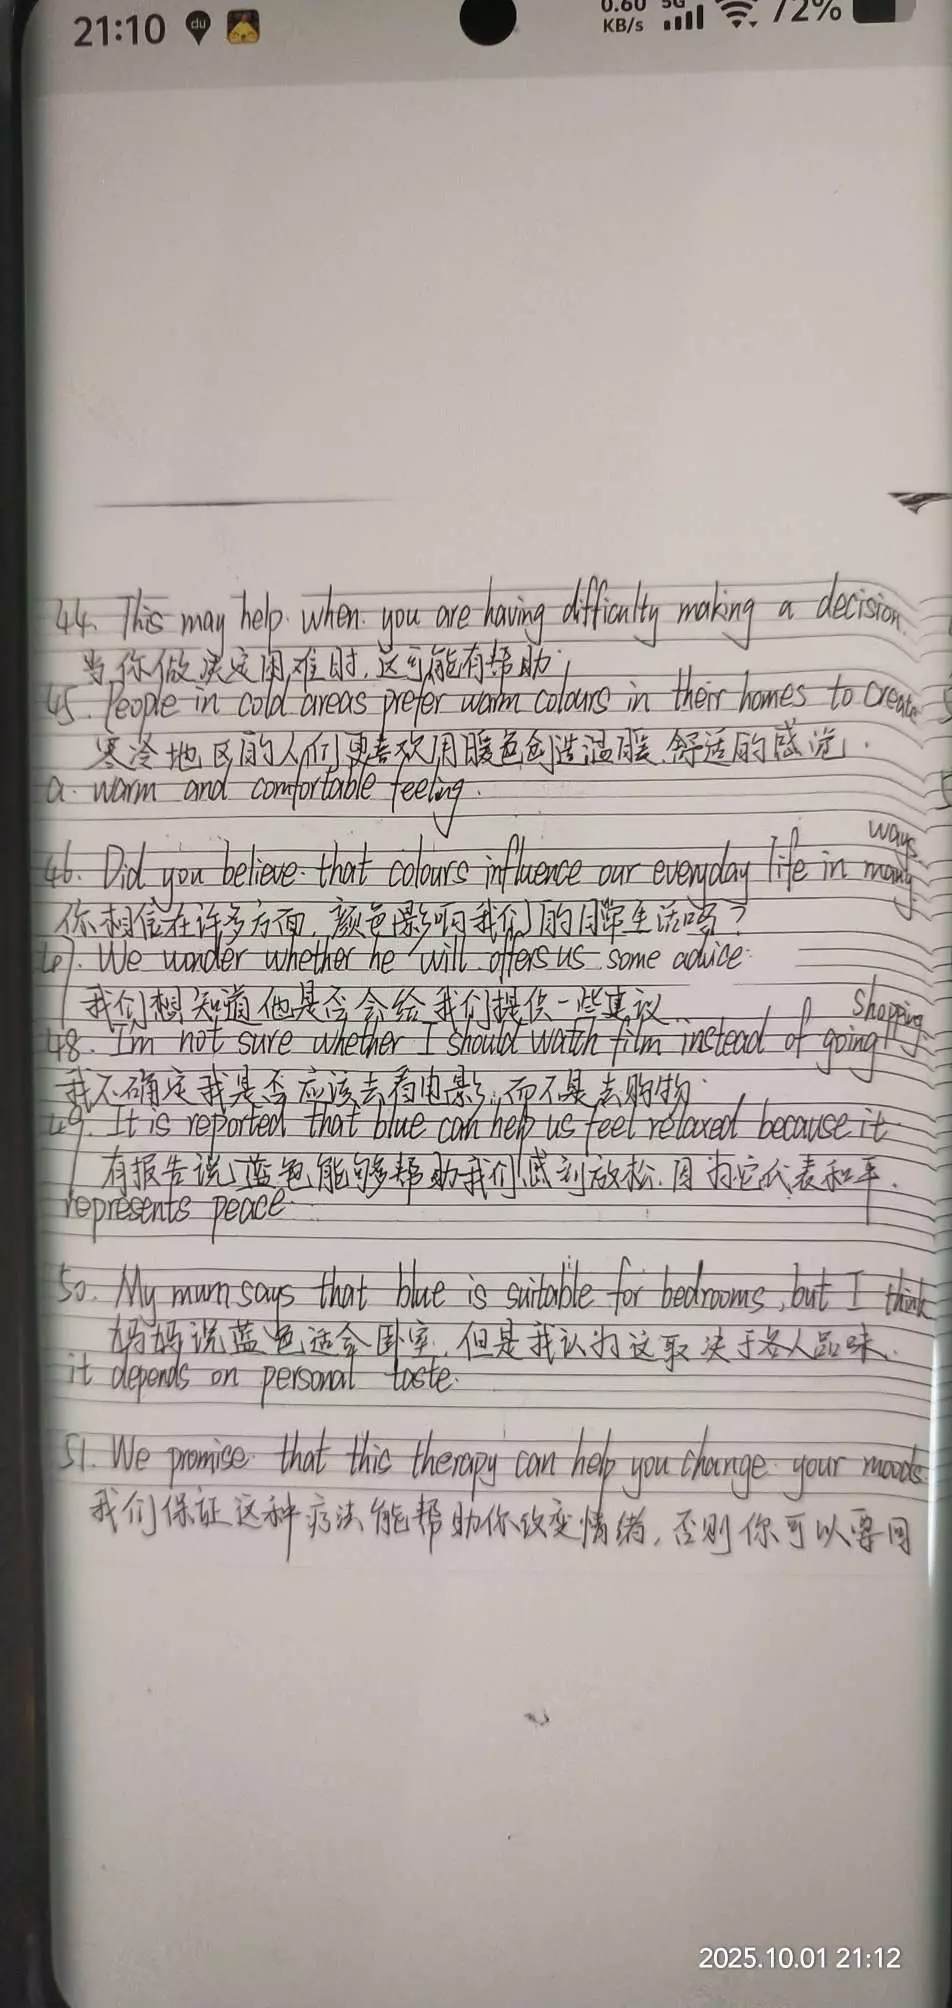 21:10
du
0.60 KB/s
5G
72%
44. This may help when you are having difficulty making a decision.
当你做决定困难时，这可能有帮助。
45. People in cold areas prefer warm colours in their homes to create
寒冷地区的人们更喜欢用暖色创造温暖、舒适的感觉.
a warm and comfortable feeling.
ways
46. Did you believe that colours influence our everyday life in many
你相信在许多方面,颜色影响我们的日常生活吗?
47. We wonder whether he will offers us some advice.
我们想知道他是否会给我们提供一些建议
shopping
48. I'm not sure whether I should watch film instead of going
我不确定我是否应该去看电影,而不是去购物.
49. It is reported that blue can help us feel relaxed because it
有报告说,蓝色能够帮助我们感到放松.因为它代表和平.
represents peace
50. My mum says that blue is suitable for bedrooms, but I think
妈妈说蓝色适合卧室,但是我认为这取决于各人品味.
it depends on personal taste.
51. We promise that this therapy can help you change your moods
我们保证这种疗法能帮助你改变情绪,否则你可以要回
2025.10.01 21:12